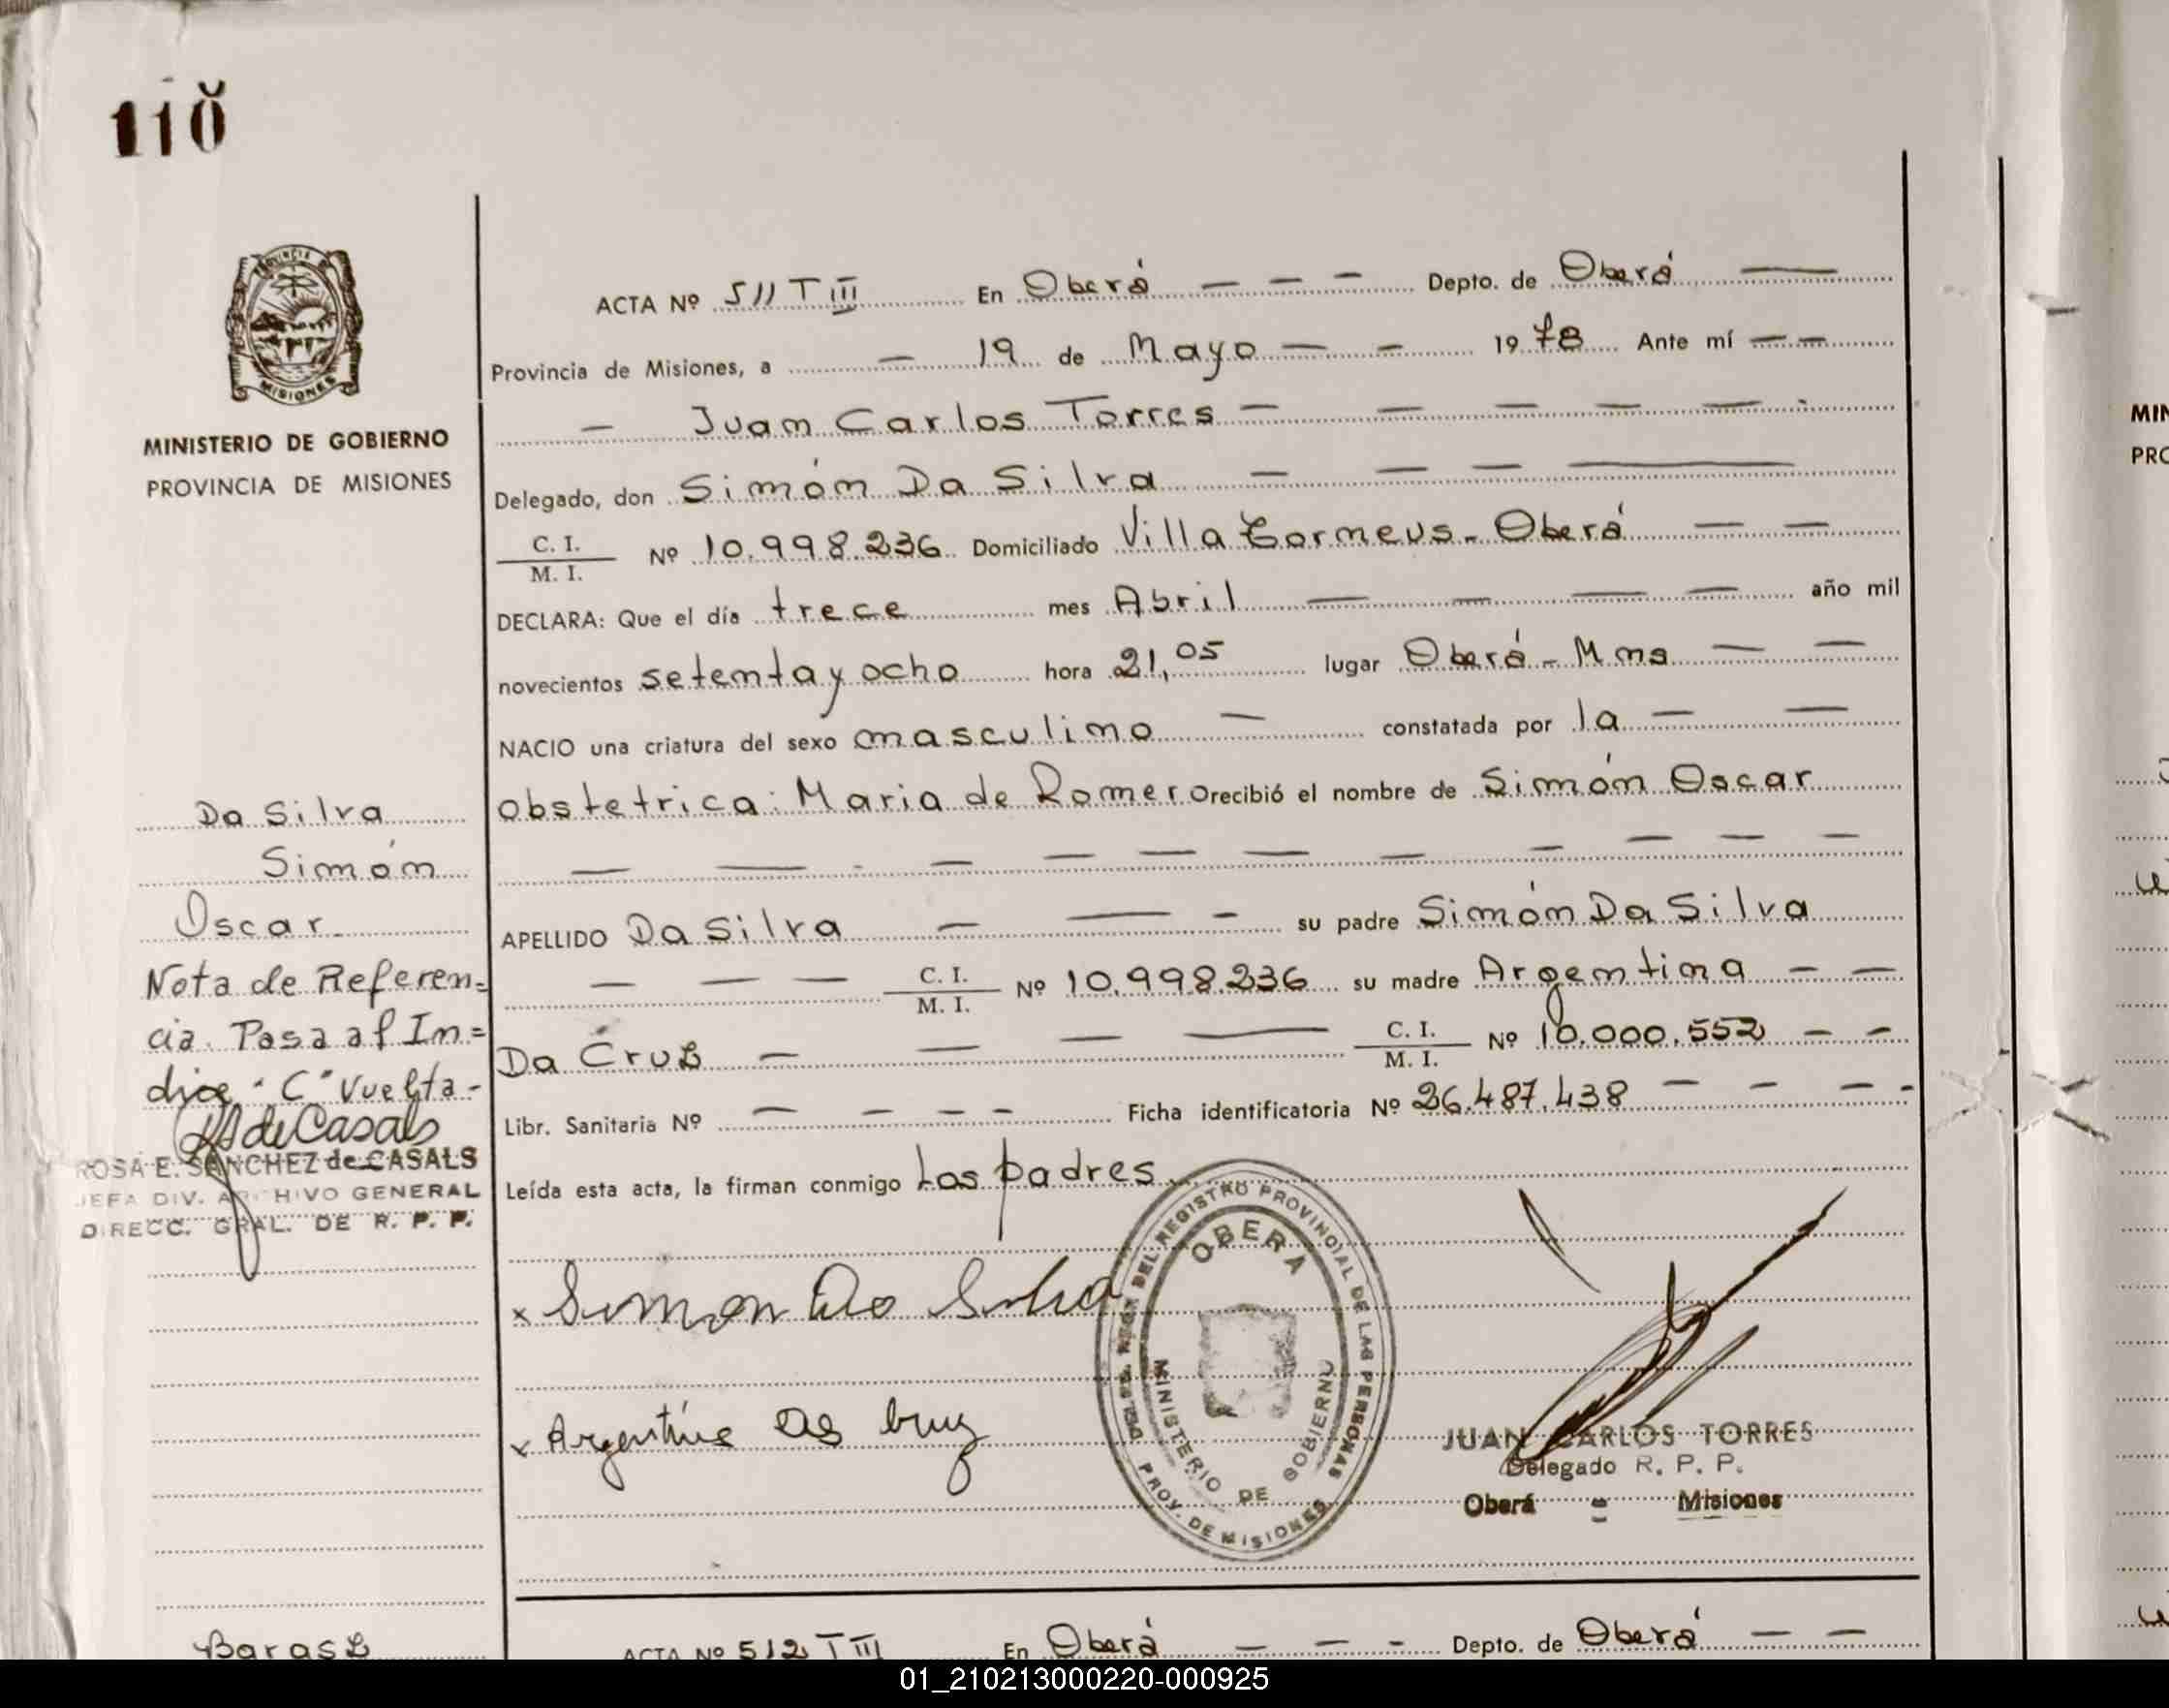 110
PROVINCIA DE
MISIONES
MINISTERIO DE GOBIERNO
PROVINCIA DE MISIONES
ACTA Nº 511 T III En Oberá — — — Depto. de Oberá —
Provincia de Misiones, a — 19 de Mayo — — 1978 Ante mí — —
— Juan Carlos Torres — — — — —
Delegado, don Simón Da Silva — — — —
C. I. / M. I. Nº 10.998.236 Domiciliado Villa Bormeus - Oberá — —
DECLARA: Que el día trece mes Abril — — — — año mil
novecientos setenta y ocho hora 21,05 lugar Oberá - Mnes — —
NACIO una criatura del sexo masculino — constatada por la — —
obstetrica: Maria de Romero recibió el nombre de Simón Oscar
— — - — — — — — — — — —
APELLIDO Da Silva — — - su padre Simón Da Silva
— — — C. I. / M. I. Nº 10.998.236 su madre Argentina — —
Da Cruz — — — — C. I. / M. I. Nº 10.000.552 — —
Libr. Sanitaria Nº — — — — Ficha identificatoria Nº 26.487.438 — — — -
Leída esta acta, la firman conmigo Los padres
x Simon Da Silva
x Argentina Das Cruz
Da Silva
Simón
Oscar
Nota de Referen=
cia. Pasa al In=
dice "C" Vuelta-
RS de Casals
ROSA E. SANCHEZ de CASALS
JEFA DIV. ARCHIVO GENERAL
DIRECC. GRAL. DE R. P. P.
DEL REGISTRO PROVINCIAL DE LAS PERSONAS
OBERA
MINISTERIO DE GOBIERNO
PROV. DE MISIONES
JUAN CARLOS TORRES
Delegado R. P. P.
Oberá - Misiones
ACTA Nº 512 T III En Oberá — — - Depto. de Oberá — —
MIN
PRO
01_210213000220-000925